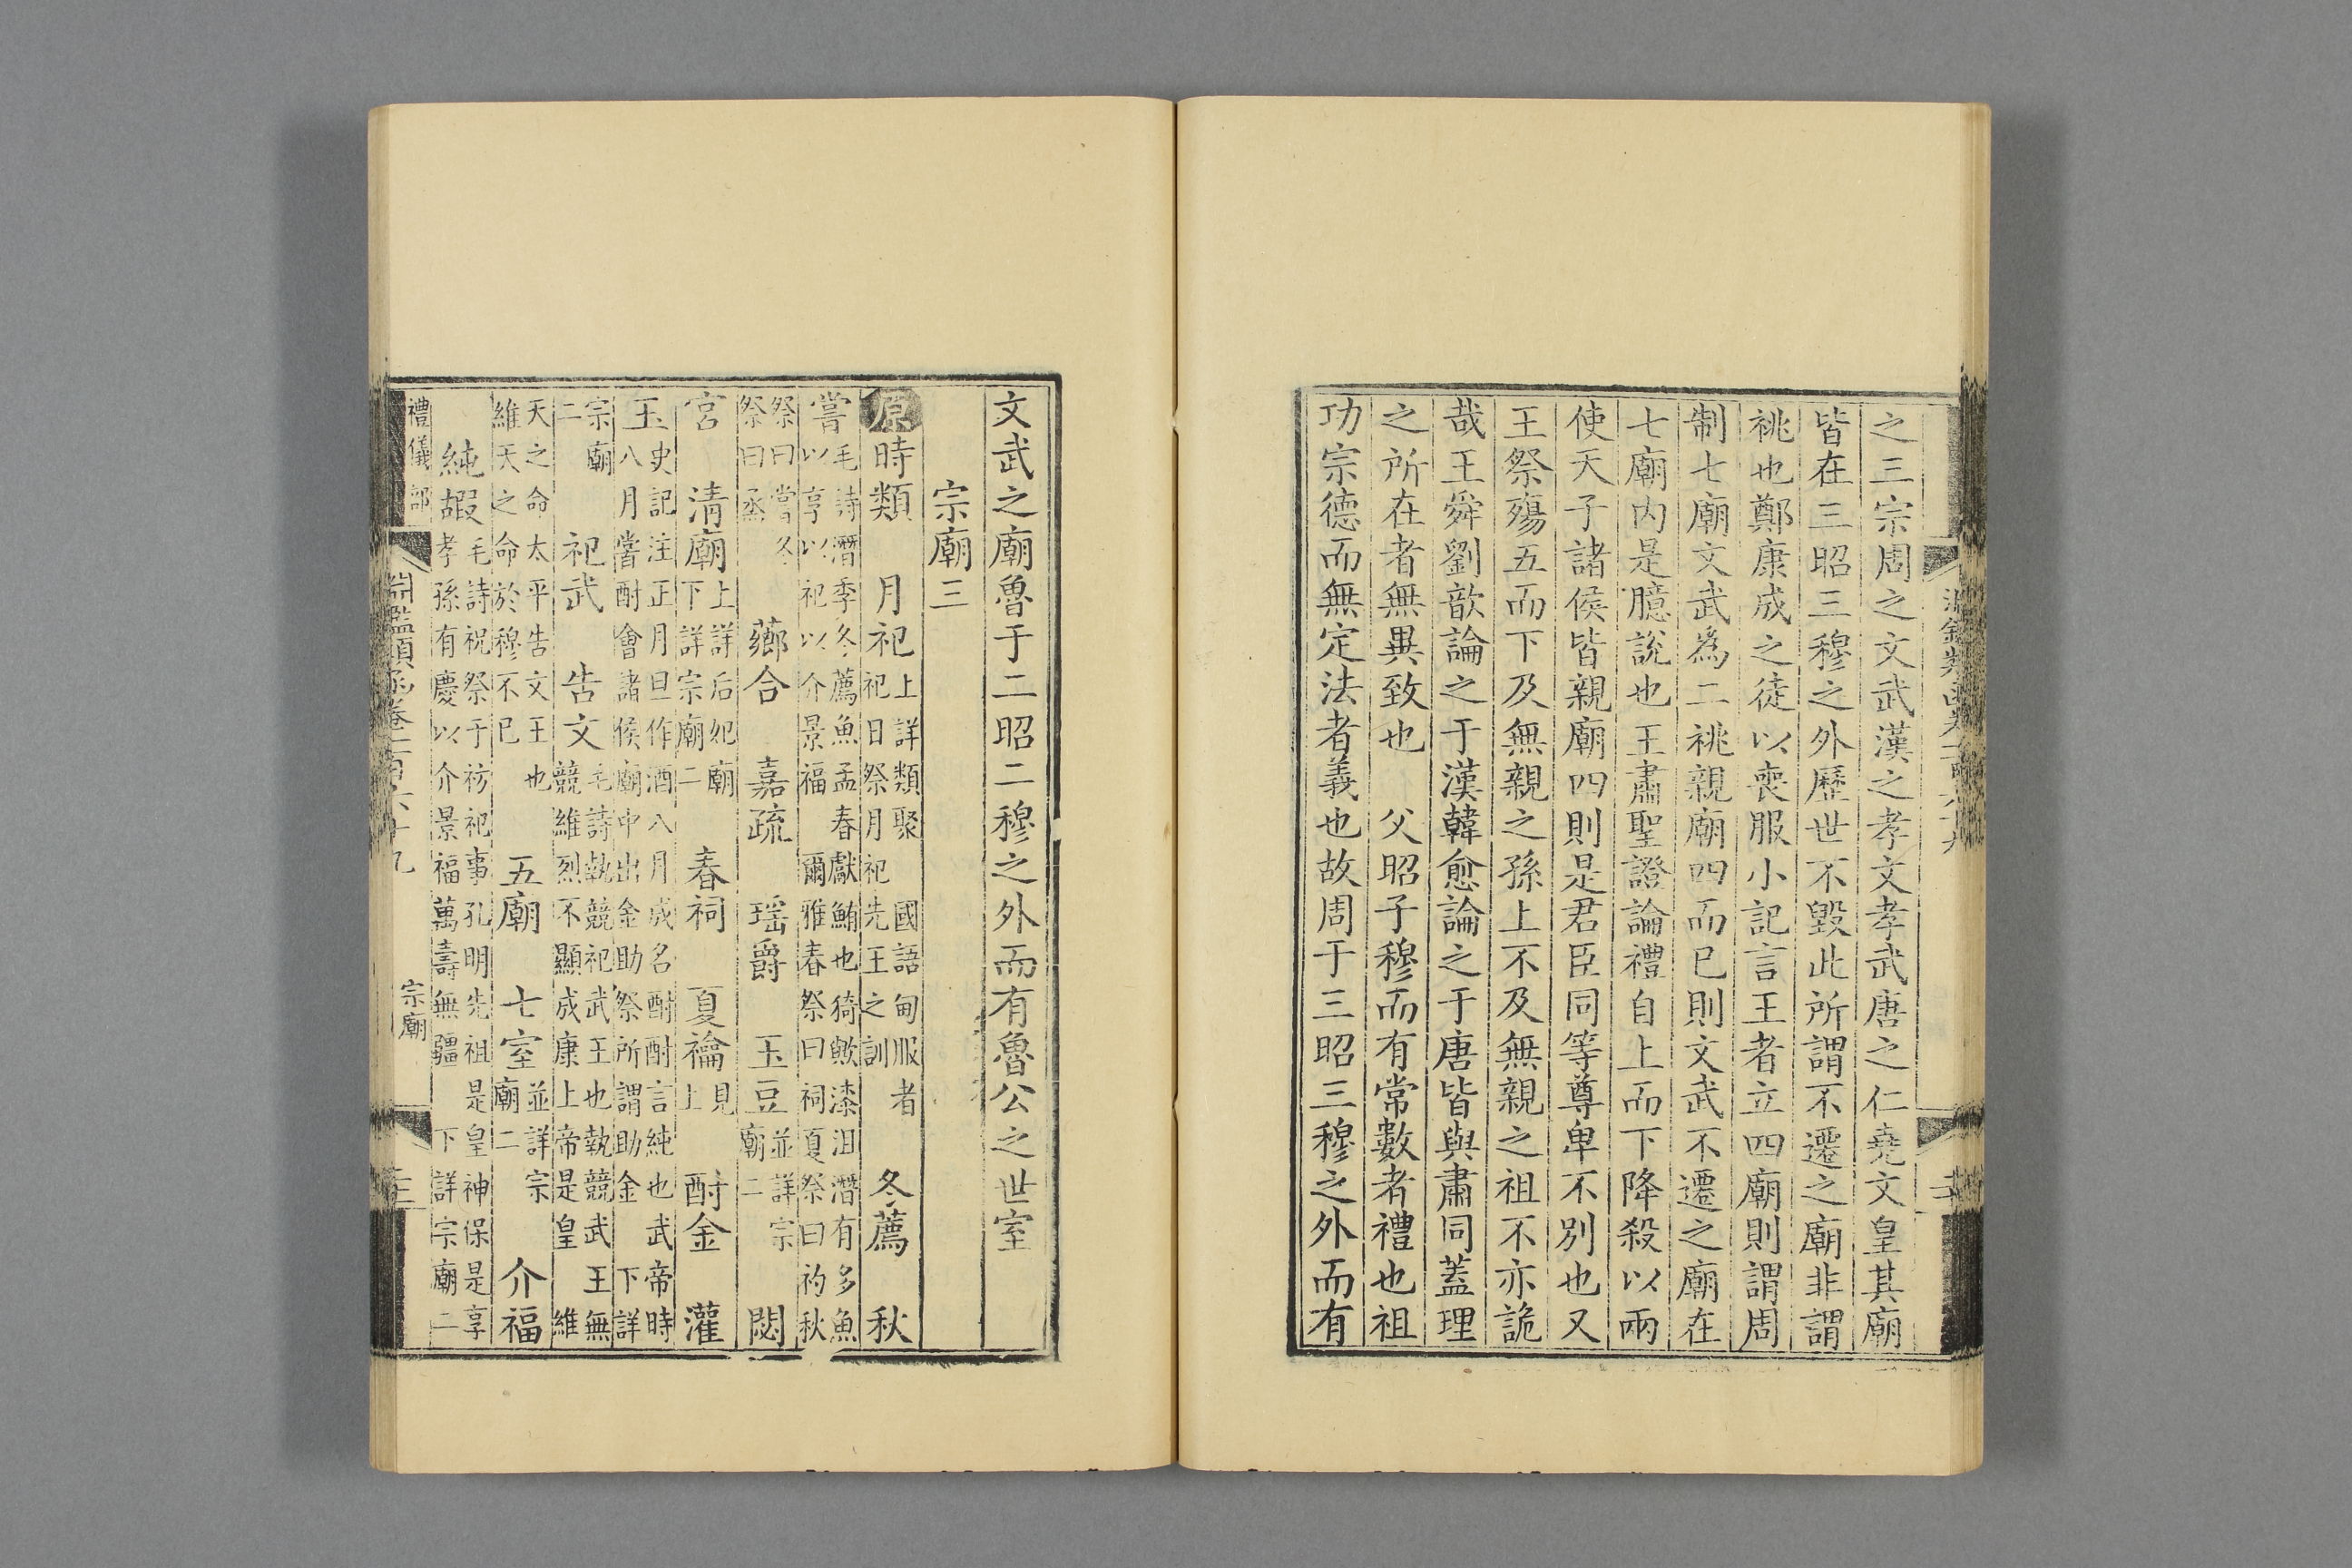 之三宗周之文武漢之孝文孝武唐之仁堯文皇其廟
皆在三昭三穆之外歷世不毀此所謂不遷之廟非謂
祧也鄭康成之徒以喪服小記言王者立四廟則謂周
制七廟文武為二祧親廟四而已則文武不遷之廟在
七廟內是臆說也王肅聖證論禮自上而下降殺以兩
使天子諸侯皆親廟四則是君臣同等尊卑不別也又
王祭殤五而下及無親之孫上不及無親之祖不亦詭
哉王舜劉歆論之于漢韓愈論之于唐皆與肅同蓋理
之所在者無異致也 父昭子穆而有常數者禮也祖
功宗德而無定法者義也故周于三昭三穆之外而有
文武之廟魯于二昭二穆之外而有魯公之世室
宗廟三
原 時類 月祀 上詳類聚 國語甸服者
祀日祭月祀先王之訓 冬薦 秋
嘗 毛詩潛季冬薦魚孟春獻鮪也猗歟漆沮潛有多魚
以享以祀以介景福 爾雅春祭曰祠夏祭曰礿秋
祭曰嘗冬
祭曰烝 薌合 嘉疏 瑶爵 玉豆 並詳宗
廟二 閟
宮 清廟 上詳后妃廟
下詳宗廟二 春祠 夏禴 見
上 酎金 灌
玉 史記注正月旦作酒八月成名酎酎言純也武帝時
八月嘗酎會諸侯廟中出金助祭所謂助金 下詳
宗廟
二 祀武 告文 毛詩執競祀武王也執競武王無
競維烈不顯成康上帝是皇 維
天之命太平告文王也
維天之命於穆不已 五廟 七室 並詳宗
廟二 介福
純嘏 毛詩祝祭于祊祀事孔明先祖是皇神保是享
孝孫有慶以介景福萬壽無疆 下詳宗廟二
禮儀部
淵鑑類函卷一百六十九
宗廟